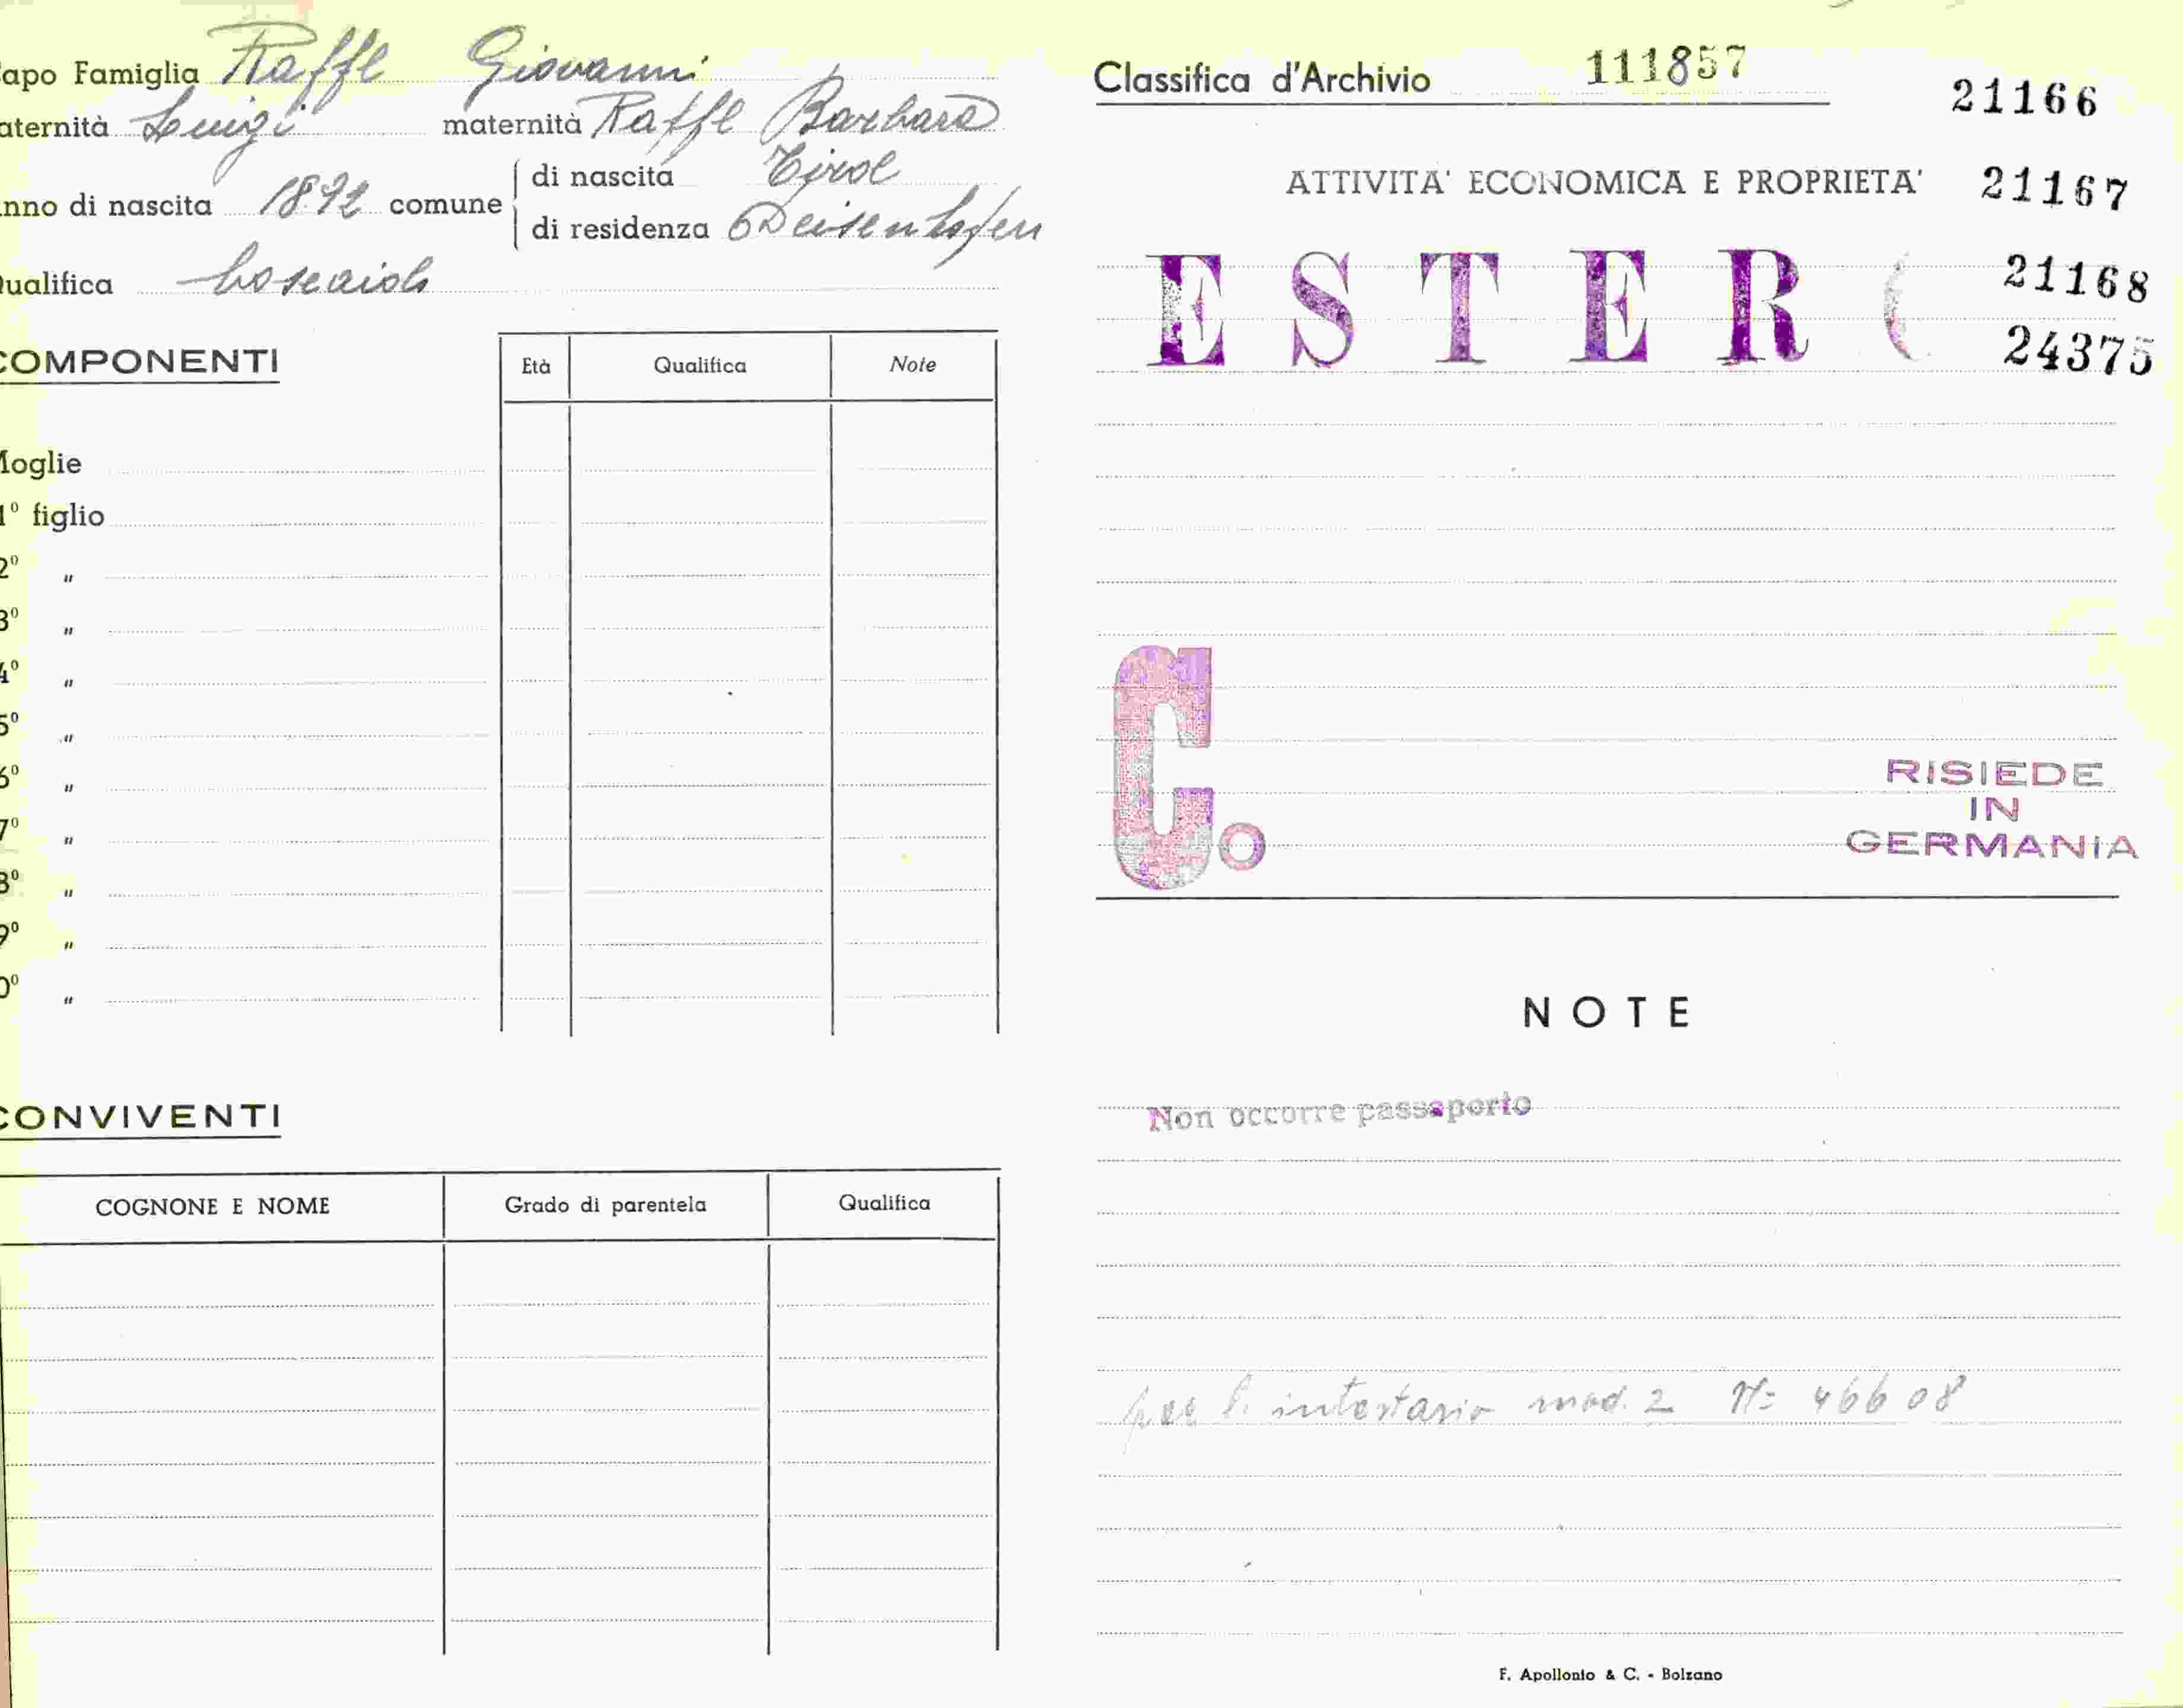 apo Famiglia Raffl Giovanni
aternità Luigi maternità Raffl Barbara
nno di nascita 1892 comune di nascita Tirol
di residenza Deisenhofen
ualifica boscaiolo
COMPONENTI
Età Qualifica Note
Moglie
1º figlio
2º "
3º "
4º "
5º "
6º "
7º "
8º "
9º "
0º "
CONVIVENTI
COGNONE E NOME Grado di parentela Qualifica
Classifica d'Archivio 111857
21166
ATTIVITA' ECONOMICA E PROPRIETA' 21167
ESTER
21168
24375
C.o
RISIEDE
IN
GERMANIA
NOTE
Non occorre passaporto
per l'intestario mod. 2 Nº 46608
F. Apollonio & C. - Bolzano